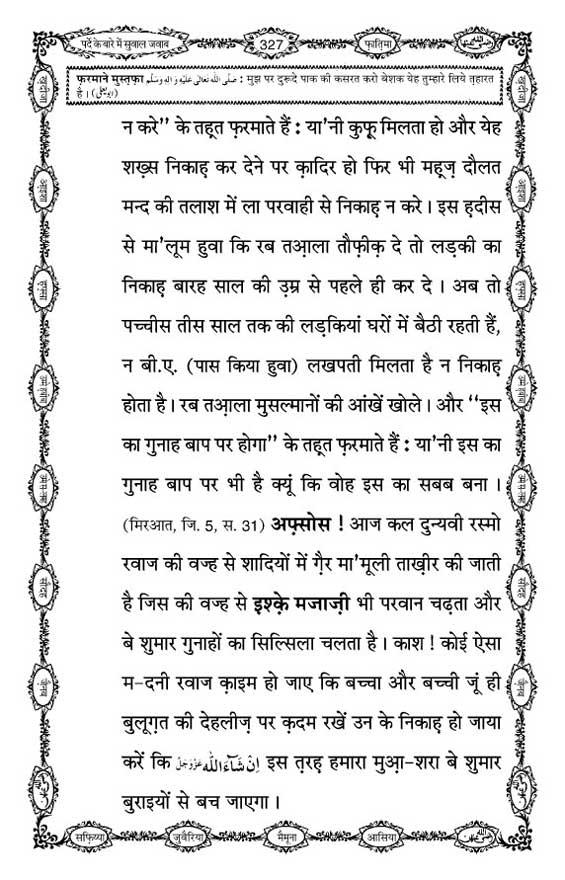 पर्दे के बारे में सुवाल जवाब
327
फ़ातिमा
फ़रमाने मुस्तफ़ा صَلَّى اللهُ تَعَالٰى عَلَيْهِ وَاٰلِهٖ وَسَلَّم : मुझ पर दुरूदे पाक की कसरत करो बेशक येह तुम्हारे लिये त़हारत
है। (ابو يعلى)
न करे” के तह़त फ़रमाते हैं : या'नी कुफ़ू मिलता हो और येह
शख़्स निकाह़ कर देने पर क़ादिर हो फिर भी मह़्ज़ दौलत
मन्द की तलाश में ला परवाही से निकाह़ न करे। इस ह़दीस
से मा'लूम हुवा कि रब तआ़ला तौफ़ीक़ दे तो लड़की का
निकाह़ बारह साल की उ़म्र से पहले ही कर दे। अब तो
पच्चीस तीस साल तक की लड़कियां घरों में बैठी रहती हैं,
न बी.ए. (पास किया हुवा) लखपती मिलता है न निकाह़
होता है। रब तआ़ला मुसल्मानों की आंखें खोले। और “इस
का गुनाह बाप पर होगा” के तह़त फ़रमाते हैं : या'नी इस का
गुनाह बाप पर भी है क्यूं कि वोह इस का सबब बना।
(मिरआत, जि. 5, स. 31) अफ़्सोस ! आज कल दुन्यवी रस्मो
रवाज की वज्ह से शादियों में ग़ैर मा'मूली ताख़ीर की जाती
है जिस की वज्ह से इश्क़े मजाज़ी भी परवान चढ़ता और
बे शुमार गुनाहों का सिल्सिला चलता है। काश ! कोई ऐसा
म-दनी रवाज क़ाइम हो जाए कि बच्चा और बच्ची जूं ही
बुलूग़त की देहलीज़ पर क़दम रखें उन के निकाह़ हो जाया
करें कि اِنْ شَآءَ اللّٰه عَزَّوَجَلَّ इस त़रह़ हमारा मुआ़-शरा बे शुमार
बुराइयों से बच जाएगा।
सफ़िय्या
जुवैरिया
मैमूना
आसिया